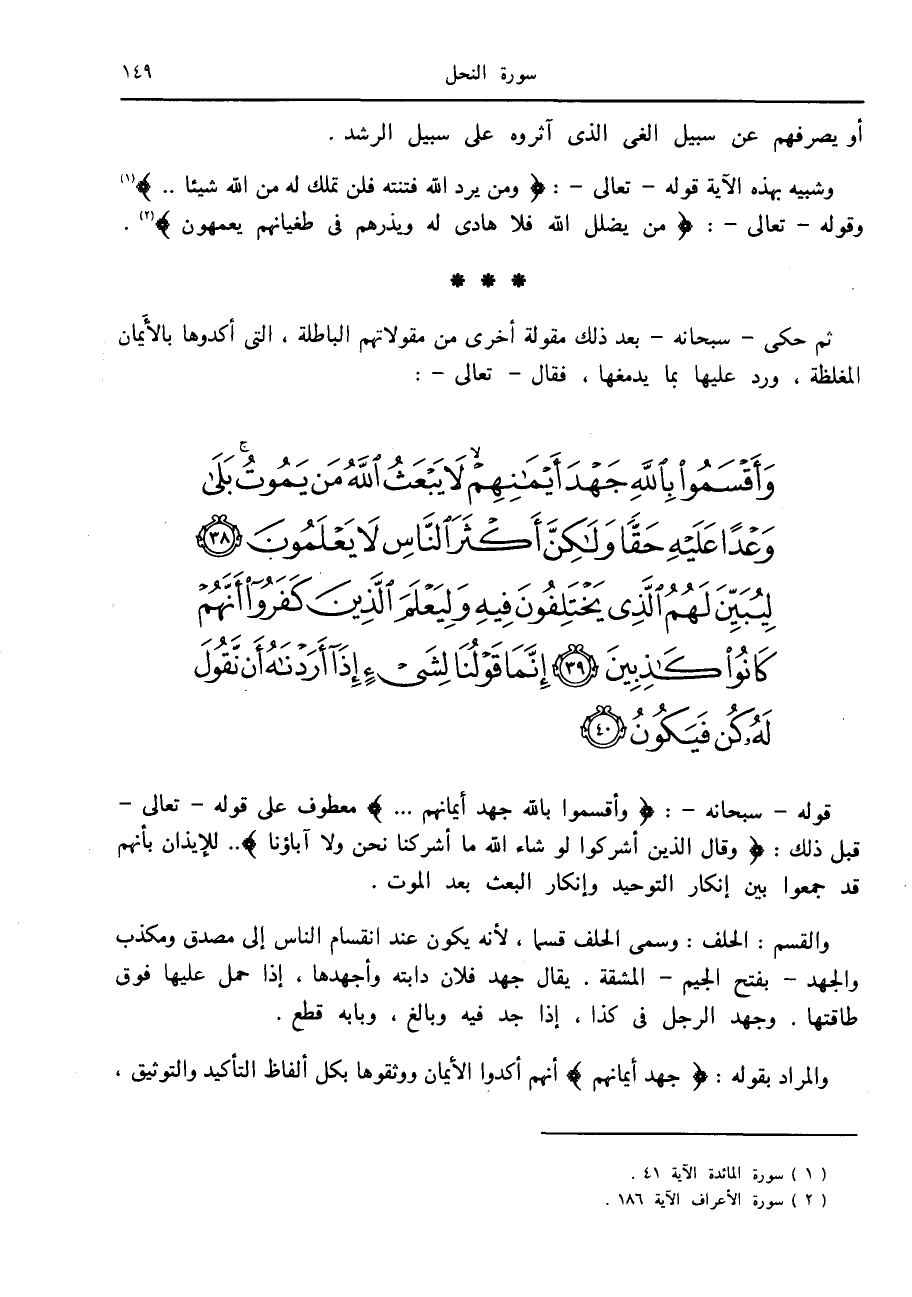 سورة النحل ١٤٩
أو يصرفهم عن سبيل الغى الذى آثروه على سبيل الرشد .
وشبيه بهذه الآية قوله – تعالى – : ﴿ ومن يرد الله فتنته فلن تملك له من الله شيئا .. ﴾(١)
وقوله – تعالى – : ﴿ من يضلل الله فلا هادى له ويذرهم فى طغيانهم يعمهون ﴾(٢) .
* * *
ثم حكى – سبحانه – بعد ذلك مقولة أخرى من مقولاتهم الباطلة ، التى أكدوها بالأَيمان
المغلظة ، ورد عليها بما يدمغها ، فقال – تعالى – :
وَأَقْسَمُوا۟ بِٱللَّهِ جَهْدَ أَيْمَـٰنِهِمْ ۙ لَا يَبْعَثُ ٱللَّهُ مَن يَمُوتُ ۚ بَلَىٰ
وَعْدًا عَلَيْهِ حَقًّا وَلَـٰكِنَّ أَكْثَرَ ٱلنَّاسِ لَا يَعْلَمُونَ ﴿٣٨﴾
لِيُبَيِّنَ لَهُمُ ٱلَّذِى يَخْتَلِفُونَ فِيهِ وَلِيَعْلَمَ ٱلَّذِينَ كَفَرُوٓا۟ أَنَّهُمْ
كَانُوا۟ كَـٰذِبِينَ ﴿٣٩﴾ إِنَّمَا قَوْلُنَا لِشَىْءٍ إِذَآ أَرَدْنَـٰهُ أَن نَّقُولَ
لَهُۥ كُن فَيَكُونُ ﴿٤٠﴾
قوله – سبحانه – : ﴿ وأقسموا بالله جهد أيمانهم ... ﴾ معطوف على قوله – تعالى –
قبل ذلك : ﴿ وقال الذين أشركوا لو شاء الله ما أشركنا نحن ولا آباؤنا ﴾.. للإيذان بأنهم
قد جمعوا بين إنكار التوحيد وإنكار البعث بعد الموت .
والقسم : الحلف : وسمى الحلف قسما ، لأنه يكون عند انقسام الناس إلى مصدق ومكذب
والجهد – بفتح الجيم – المشقة . يقال جهد فلان دابته وأجهدها ، إذا حمل عليها فوق
طاقتها . وجهد الرجل فى كذا ، إذا جد فيه وبالغ ، وبابه قطع .
والمراد بقوله : ﴿ جهد أيمانهم ﴾ أنهم أكدوا الأيمان ووثقوها بكل ألفاظ التأكيد والتوثيق ،
( ١ ) سورة المائدة الآية ٤١ .
( ٢ ) سورة الأعراف الآية ١٨٦ .